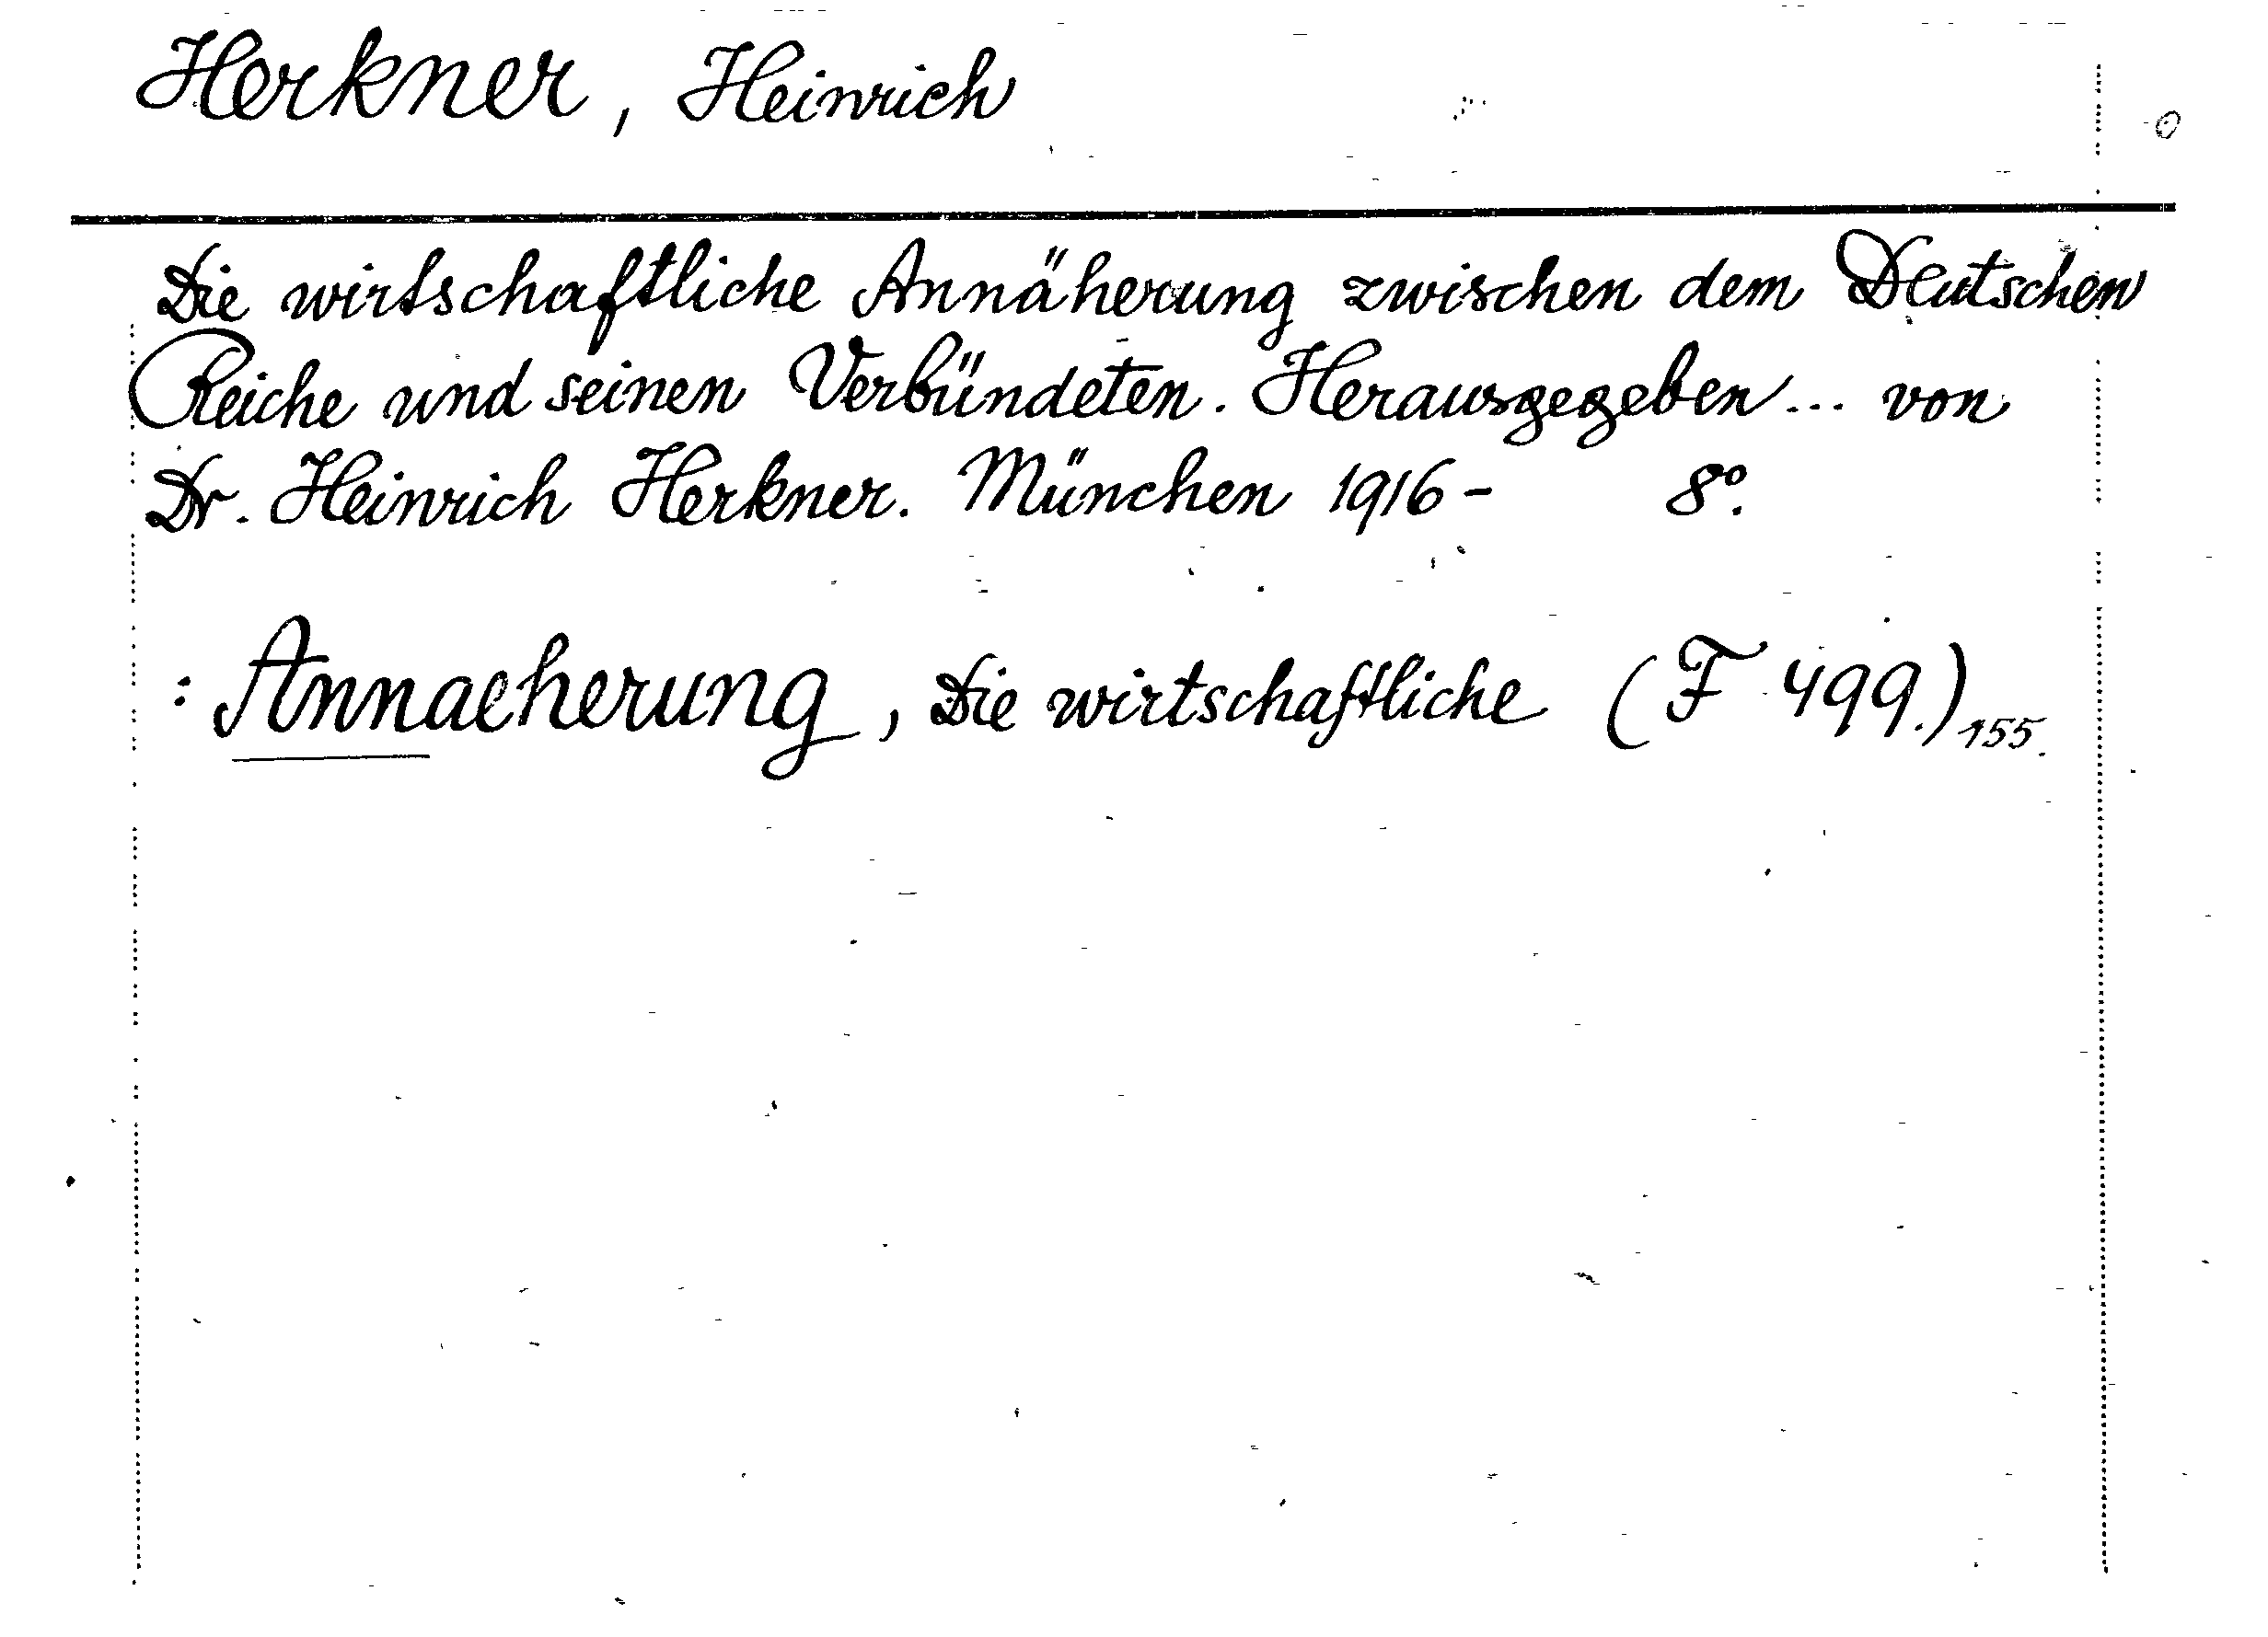 Herkner, Heinrich
Die wirtschaftliche Annäherung zwischen dem Deutschen
Reiche und seinen Verbündeten. Herausgegeben... von
Dr. Heinrich Herkner. München 1916- 8°.
: Annaeherung, Die wirtschaftliche (F 499.) 155.